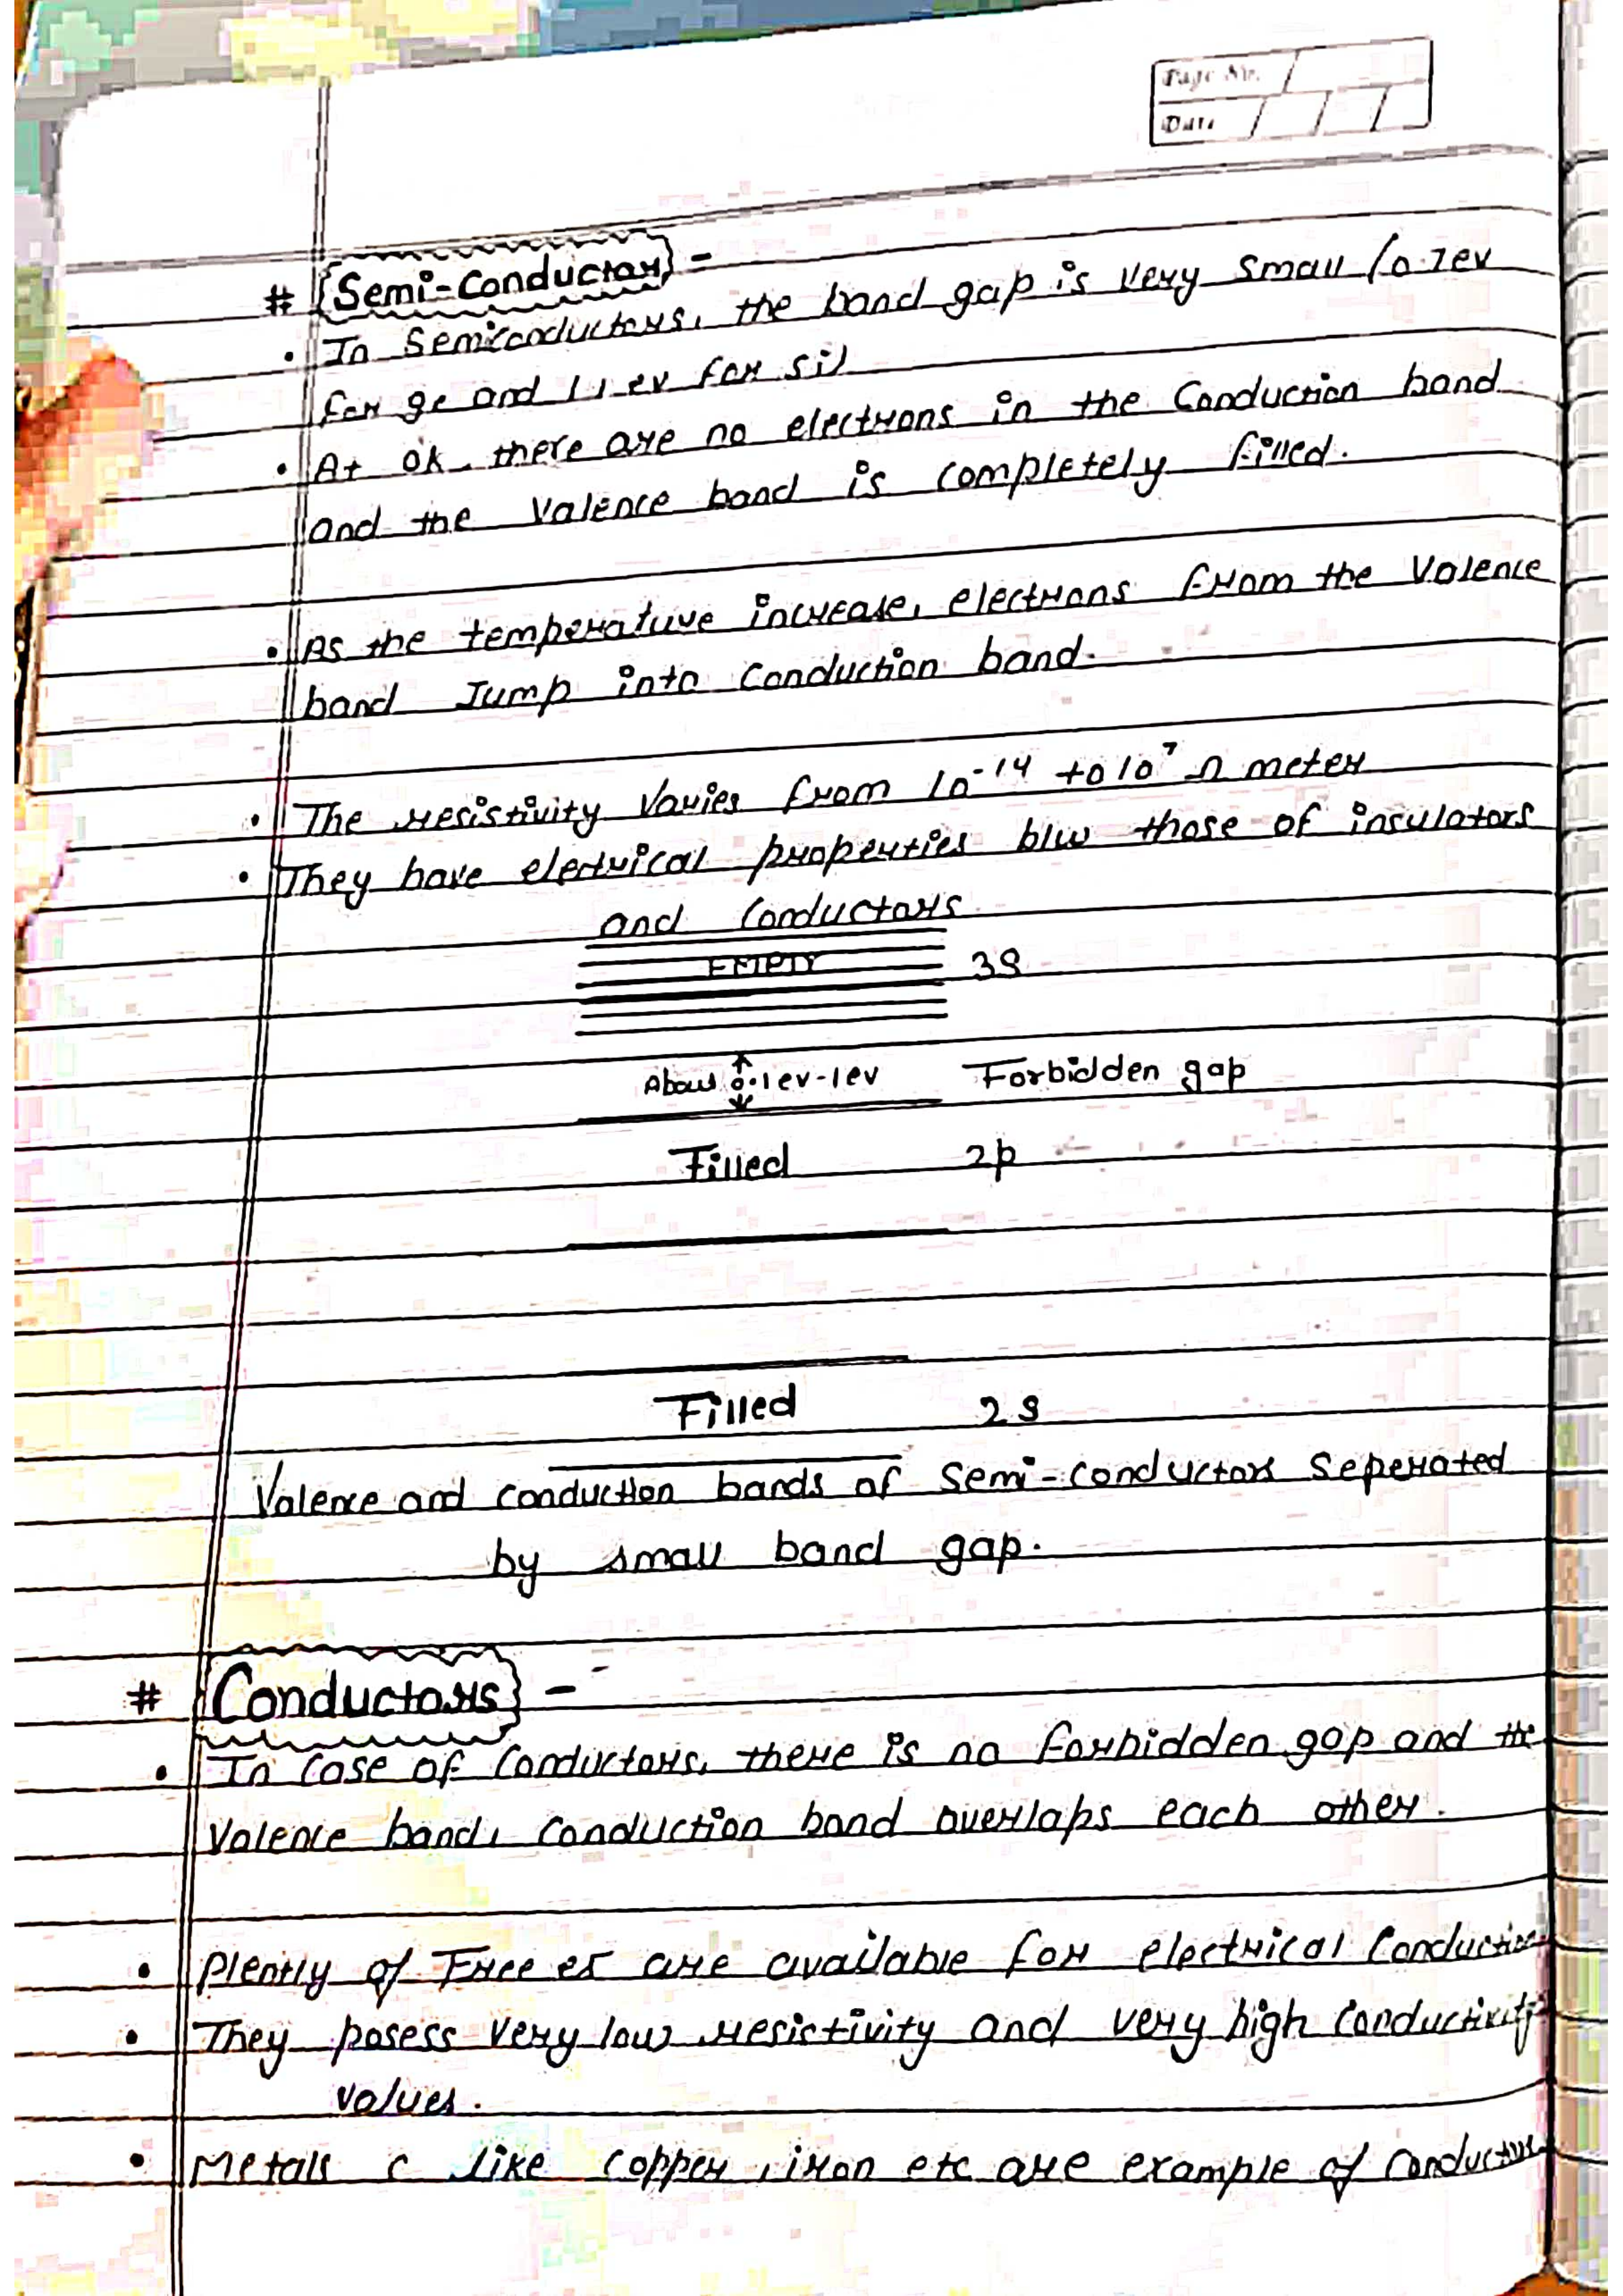 Page No.
Date
# Semi-Conductor -
• In Semiconductors, the band gap is very small (0.7ev
for ge and 1.1 ev for si)
• At 0k, there are no electrons in the Conduction band
and the Valence band is completely filled.
• As the temperature increase, electrons from the Valence
band Jump into Conduction band.
• The resistivity Varies from 10⁻¹⁴ to 10⁷ Ω meter
• They have electrical properties b/w those of insulators
and Conductors.
EMPTY 3S
About 0.1ev-1ev Forbidden gap
Filled 2p
Filled 2S
Valence and conduction bands of Semi-conductors Seperated
by small band gap.
# Conductors -
• In Case of Conductors, there is no forbidden gap and the
Valence band, Conduction band overlaps each other.
• Plently of Free es are available for electrical Conduction
• They posess very low resistivity and very high Conductivity
values.
• Metals c like Copper, iron etc are example of Conductors